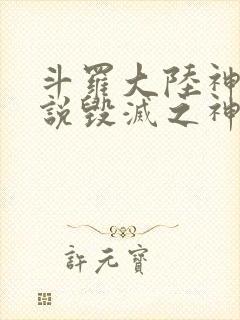 斗羅大陸神
說毀滅之神
許元寶